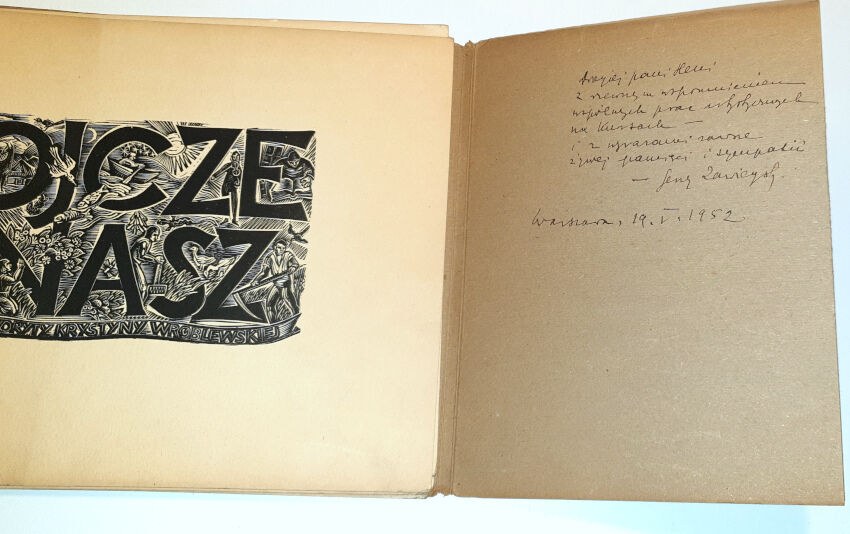 OJCZE
NASZ
ORYTY KRYSTYNY WRÓBLEWSKIEJ
Drogiej pani Heni
z rzewnym wspomnieniem
wspólnych prac artystycznych
na Kursach —
i z wyrazami zawsze
żywej pamięci i sympatii
— Jerzy Zawieyski.
Warszawa, 19.V.1952